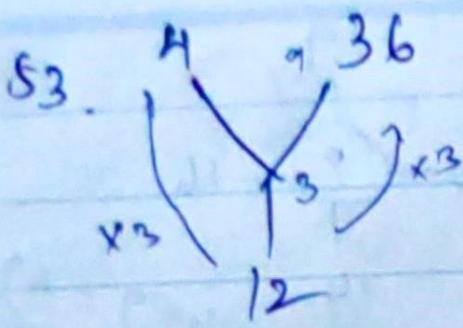 53. 4 , 36
3
×3 ×3
12